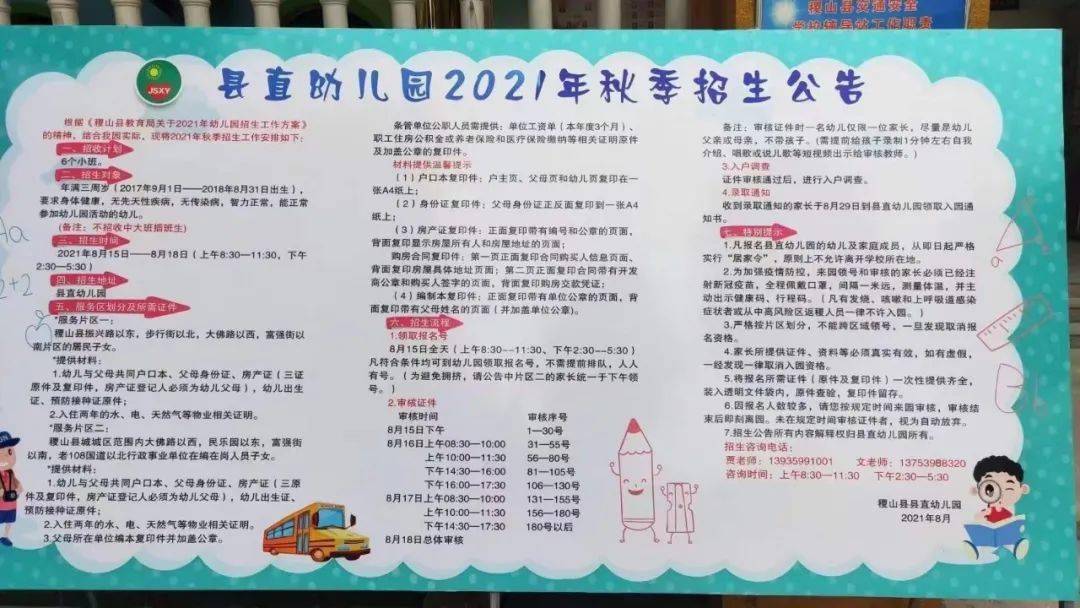 稷山县交通安全
学校辅导站工作职责
JSXY
县直幼儿园2021年秋季招生公告
根据《稷山县教育局关于2021年幼儿园招生工作方案》
的精神，结合我园实际，现将2021年秋季招生工作安排如下：
一、招收计划
6个小班。
二、招生对象
年满三周岁（2017年9月1日——2018年8月31日出生），
要求身体健康，无先天性疾病，无传染病，智力正常，能正常
参加幼儿园活动的幼儿。
(备注：不招收中大班插班生)
三、招生时间
2021年8月15日——8月18日（上午8:30—11:30，下午
2:30—5:30）
四、招生地址
县直幼儿园
五、服务区划分及所需证件
*服务片区一：
稷山县振兴路以东，步行街以北，大佛路以西，富强街以
南片区的居民子女。
*提供材料：
1.幼儿与父母共同户口本、父母身份证、房产证（三证
原件及复印件，房产证登记人必须为幼儿父母），幼儿出生
证、预防接种证原件；
2.入住两年的水、电、天然气等物业相关证明。
*服务片区二：
稷山县城城区范围内大佛路以西，民乐园以东，富强街
以南，老108国道以北行政事业单位在编在岗人员子女。
*提供材料：
1.幼儿与父母共同户口本、父母身份证、房产证（三原
件及复印件，房产证登记人必须为幼儿父母），幼儿出生证、
预防接种证原件；
2.入住两年的水、电、天然气等物业相关证明。
3.父母所在单位编本复印件并加盖公章。
条管单位公职人员需提供：单位工资单（本年度3个月）、
职工住房公积金或养老保险和医疗保险缴纳等相关证明原件
及加盖公章的复印件。
材料提供温馨提示
（1）户口本复印件：户主页、父母页和幼儿页复印在一
张A4纸上；
（2）身份证复印件：父母身份证正反面复印到一张A4
纸上；
（3）房产证复印件：正面复印带有编号和公章的页面，
背面复印显示房屋所有人和房屋地址的页面；
购房合同复印件：第一页正面复印合同购买人信息页面、
背面复印房屋具体地址页面；第二页正面复印合同带有开发
商公章和购买人签字的页面，背面复印购房交款凭证；
（4）编制本复印件：正面复印带有单位公章的页面，背
面复印带有父母姓名的页面（并加盖单位公章）。
六、招生流程
1.领取报名号
8月15日全天（上午8:30--11:30、下午2:30--5:30）
凡符合条件均可到幼儿园领取报名号，不需提前排队，人人
有号。（为避免拥挤，请公告中片区二的家长统一于下午领
号。）
2.审核证件
审核时间 审核序号
8月15日下午 1—30号
8月16日上午08:30—10:00 31—55号
上午10:00—11:30 56—80号
下午14:30—16:00 81—105号
下午16:00—17:30 106—130号
8月17日上午08:30—10:00 131—155号
上午10:00—11:30 156—180号
下午14:30—17:30 180号以后
8月18日总体审核
备注：审核证件时一名幼儿仅限一位家长，尽量是幼儿
父亲或母亲，不带孩子。(需提前给孩子录制1分钟左右自我
介绍、唱歌或说儿歌等短视频出示给审核教师。)
3.入户调查
证件审核通过后，进行入户调查。
4.录取通知
收到录取通知的家长于8月29日到县直幼儿园领取入园通
知书。
七、特别提示
1.凡报名县直幼儿园的幼儿及家庭成员，从即日起严格
实行“居家令”，原则上不允许离开学校所在地。
2.为加强疫情防控，来园领号和审核的家长必须已经注
射新冠疫苗，全程佩戴口罩，间隔一米远，测量体温，并主
动出示健康码、行程码。（凡有发烧、咳嗽和上呼吸道感染
症状者或从中高风险区返稷人员一律不许入园。）
3.严格按片区划分，不能跨区域领号，一旦发现取消报
名资格。
4.家长所提供证件、资料等必须真实有效，如有虚假，
一经发现一律取消入园资格。
5.将报名所需证件（原件及复印件）一次性提供齐全，
装入透明文件袋内，原件查验，复印件留存。
6.因报名人数较多，请您按规定时间来园审核，审核结
束后即刻离园。未在规定时间审核证件者，视为自动放弃。
7.招生公告所有内容解释权归县直幼儿园所有。
招生咨询电话：
贾老师：13935991001 文老师：13753988320
咨询时间：上午8:30—11:30 下午2:30—5:30
稷山县县直幼儿园
2021年8月